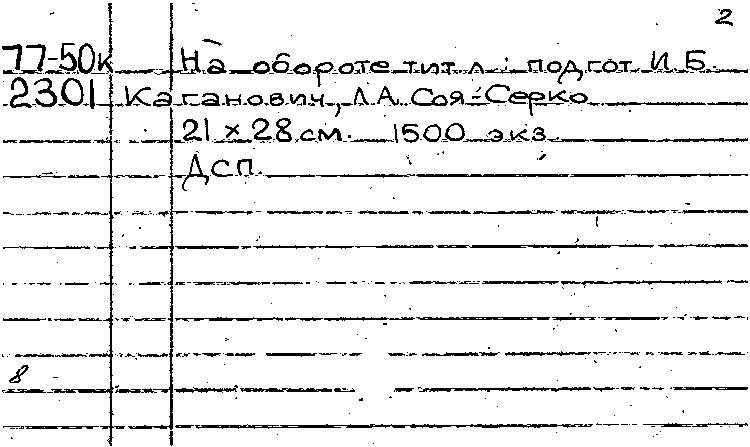 2
77-50к На обороте тит л: подгот И.Б.
2301 Каганович, Л.А. Соя-Серко
21 × 28 см. 1500 экз
ДСП.
8